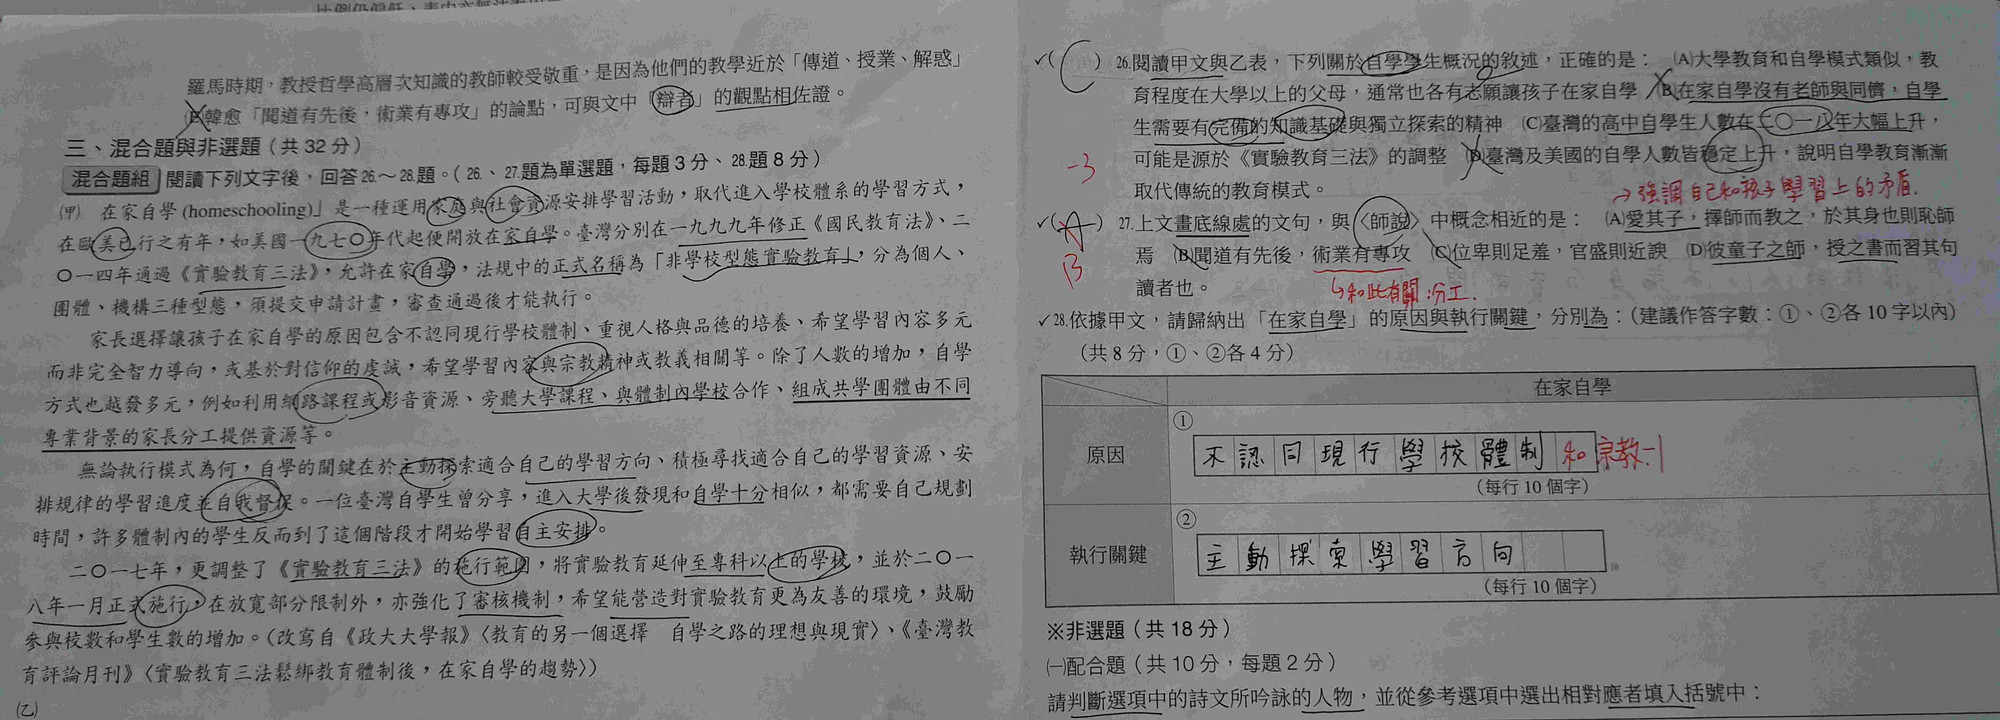 羅馬時期，教授哲學高層次知識的教師較受敬重，是因為他們的教學近於「傳道、授業、解惑」
(E)韓愈「聞道有先後，術業有專攻」的論點，可與文中「辯者」的觀點相佐證。
三、混合題與非選題（共32分）
混合題組 閱讀下列文字後，回答26.～28.題。（26.、27.題為單選題，每題3分、28.題8分）
(甲) 在家自學(homeschooling)」是一種運用家庭與社會資源安排學習活動，取代進入學校體系的學習方式，
在歐美已行之有年，如美國一九七〇年代起便開放在家自學。臺灣分別在一九九九年修正《國民教育法》、二
〇一四年通過《實驗教育三法》，允許在家自學，法規中的正式名稱為「非學校型態實驗教育」，分為個人、
團體、機構三種型態，須提交申請計畫，審查通過後才能執行。
家長選擇讓孩子在家自學的原因包含不認同現行學校體制、重視人格與品德的培養、希望學習內容多元
而非完全智力導向，或基於對信仰的虔誠，希望學習內容與宗教精神或教義相關等。除了人數的增加，自學
方式也越發多元，例如利用網路課程或影音資源、旁聽大學課程、與體制內學校合作、組成共學團體由不同
專業背景的家長分工提供資源等。
無論執行模式為何，自學的關鍵在於主動探索適合自己的學習方向、積極尋找適合自己的學習資源、安
排規律的學習進度並自我督促。一位臺灣自學生曾分享，進入大學後發現和自學十分相似，都需要自己規劃
時間，許多體制內的學生反而到了這個階段才開始學習自主安排。
二〇一七年，更調整了《實驗教育三法》的施行範圍，將實驗教育延伸至專科以上的學校，並於二〇一
八年一月正式施行，在放寬部分限制外，亦強化了審核機制，希望能營造對實驗教育更為友善的環境，鼓勵
參與校數和學生數的增加。（改寫自《政大大學報》〈教育的另一個選擇 自學之路的理想與現實〉、《臺灣教
育評論月刊》〈實驗教育三法鬆綁教育體制後，在家自學的趨勢〉）
(乙)
✓(C) 26.閱讀甲文與乙表，下列關於自學學生概況的敘述，正確的是： (A)大學教育和自學模式類似，教
育程度在大學以上的父母，通常也各有志願讓孩子在家自學 (B)在家自學沒有老師與同儕，自學
生需要有完備的知識基礎與獨立探索的精神 (C)臺灣的高中自學生人數在二〇一八年大幅上升，
-3 可能是源於《實驗教育三法》的調整 (D)臺灣及美國的自學人數皆穩定上升，說明自學教育漸漸
取代傳統的教育模式。
→強調自己和孩子學習上的矛盾.
✓(A) 27.上文畫底線處的文句，與〈師說〉中概念相近的是： (A)愛其子，擇師而教之，於其身也則恥師
B 焉 (B)聞道有先後，術業有專攻 (C)位卑則足羞，官盛則近諛 (D)彼童子之師，授之書而習其句
讀者也。
↳和此有關:分工.
✓28.依據甲文，請歸納出「在家自學」的原因與執行關鍵，分別為：（建議作答字數：①、②各10字以內）
（共8分，①、②各4分）
在家自學
原因 ①
不認同現行學校體制 和宗教-1
（每行10個字）
執行關鍵 ②
主動探索學習方向
（每行10個字）
※非選題（共18分）
㈠配合題（共10分，每題2分）
請判斷選項中的詩文所吟詠的人物，並從參考選項中選出相對應者填入括號中：